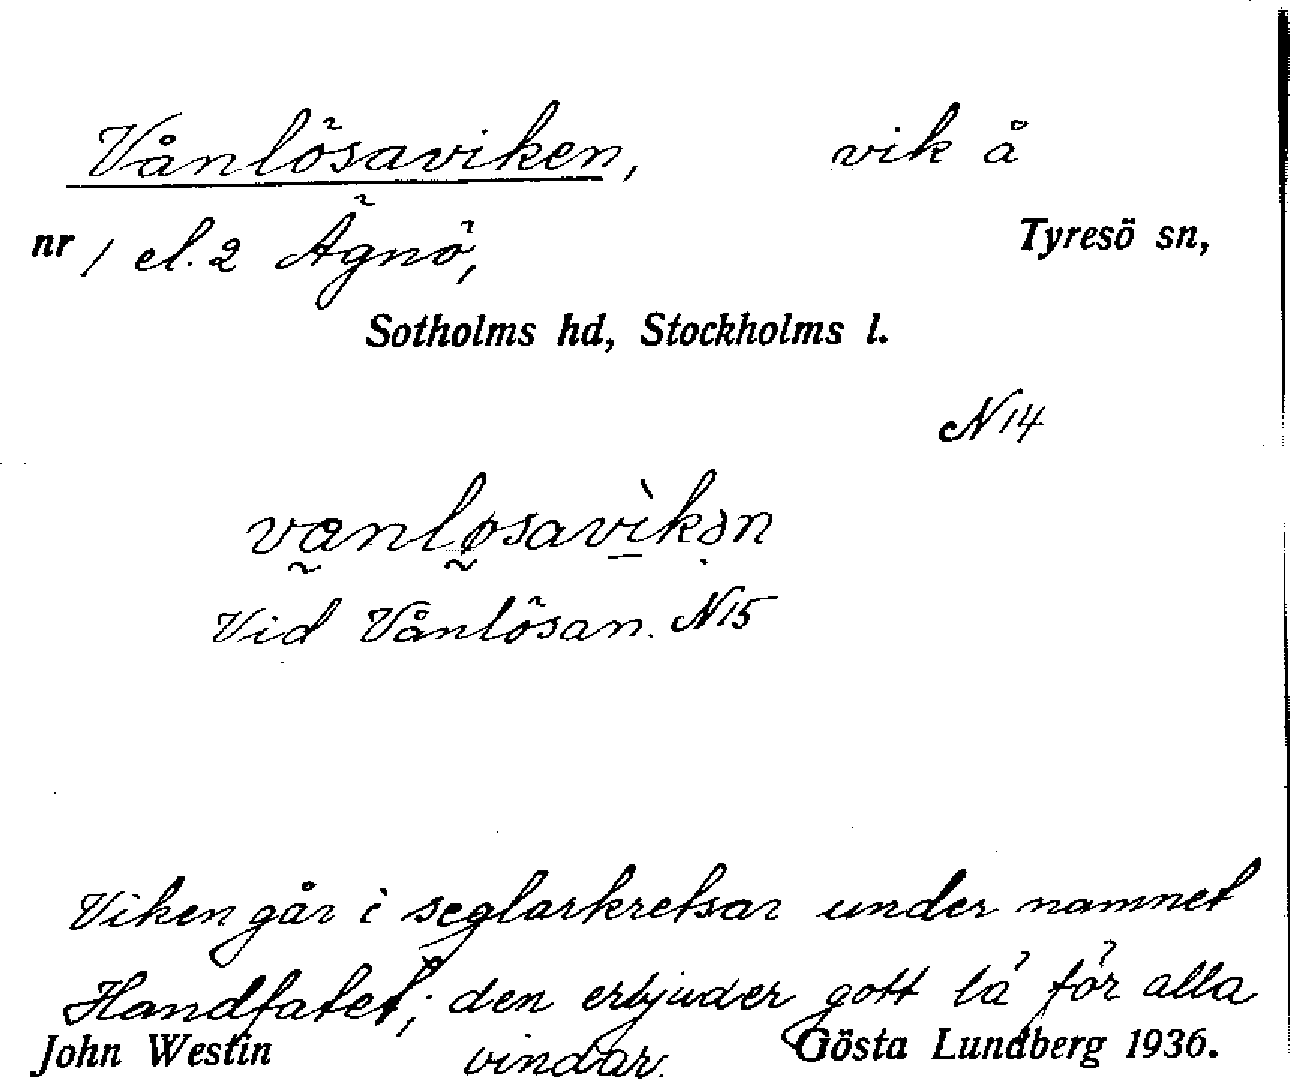 Vånlösaviken, vik å
nr 1 el. 2 Ägnö, Tyresö sn,
Sotholms hd, Stockholms l.
N 14
vanløsavìkən
Vid Vånlösan. N 15
Viken går i seglarkretsar under namnet
Handfatet; den erbjuder gott lä för alla
vindar.
John Westin Gösta Lundberg 1936.